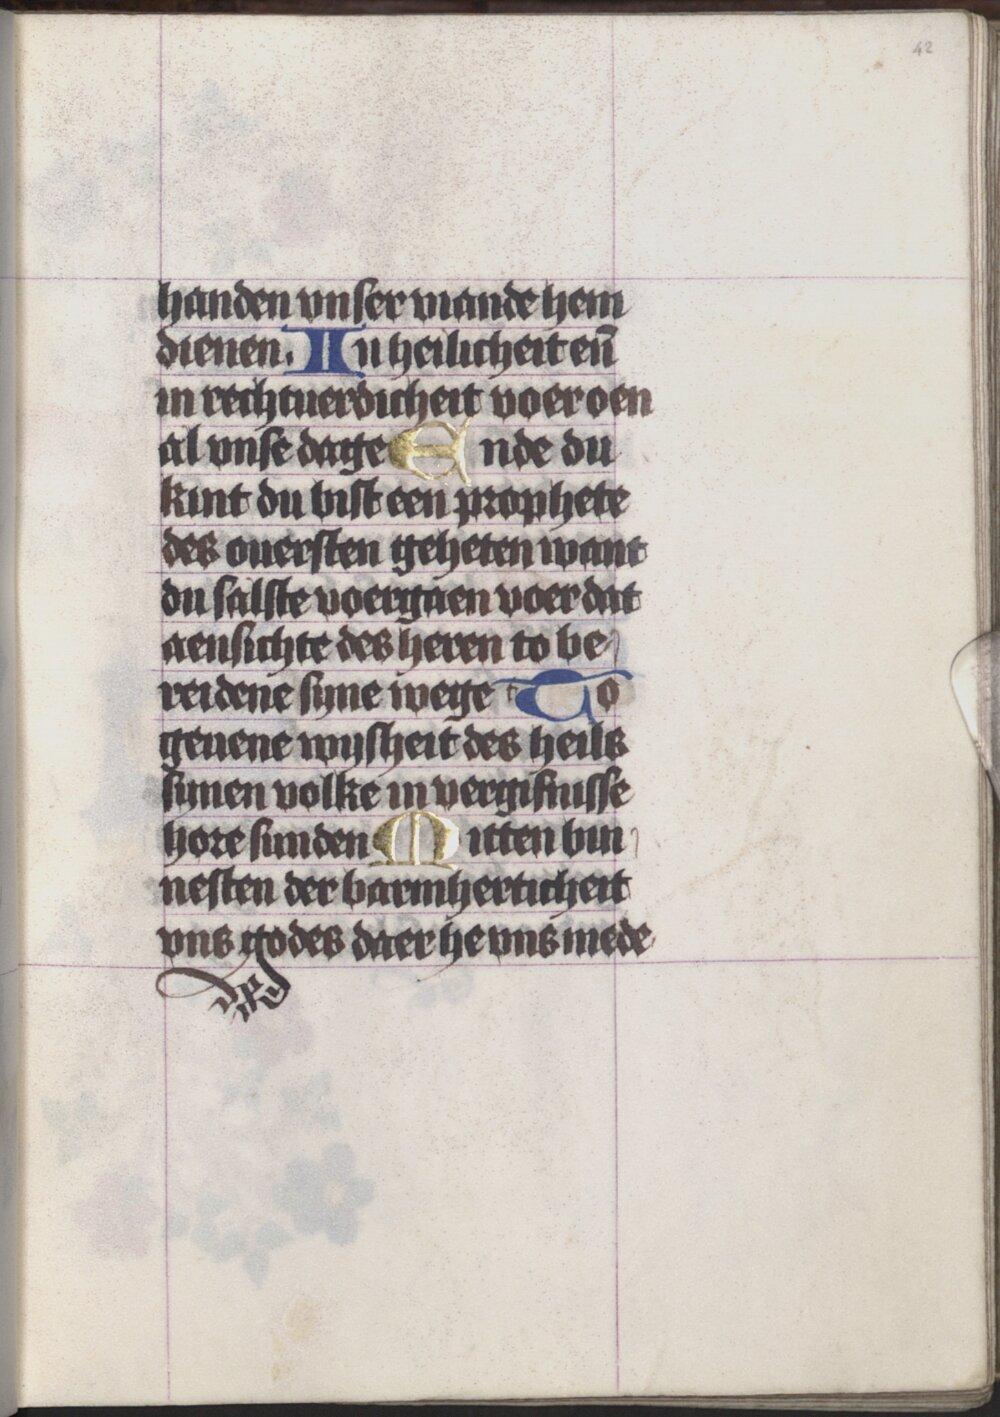 42
handen vnser viande hem
dienen. In heilicheit en̄
in rechtuerdicheit voer oen
al vnse dage Ende du
kint du bist een prophete
des ouersten geheten want
du salste voergaen voer dat
aensichte des heren to be
reidene sijne wege To
geuene wijsheit des heils
sinen volke in vergifnisse
hore sunden Mitten bin
nesten der barmherticheit
vns godes daer he vns mede